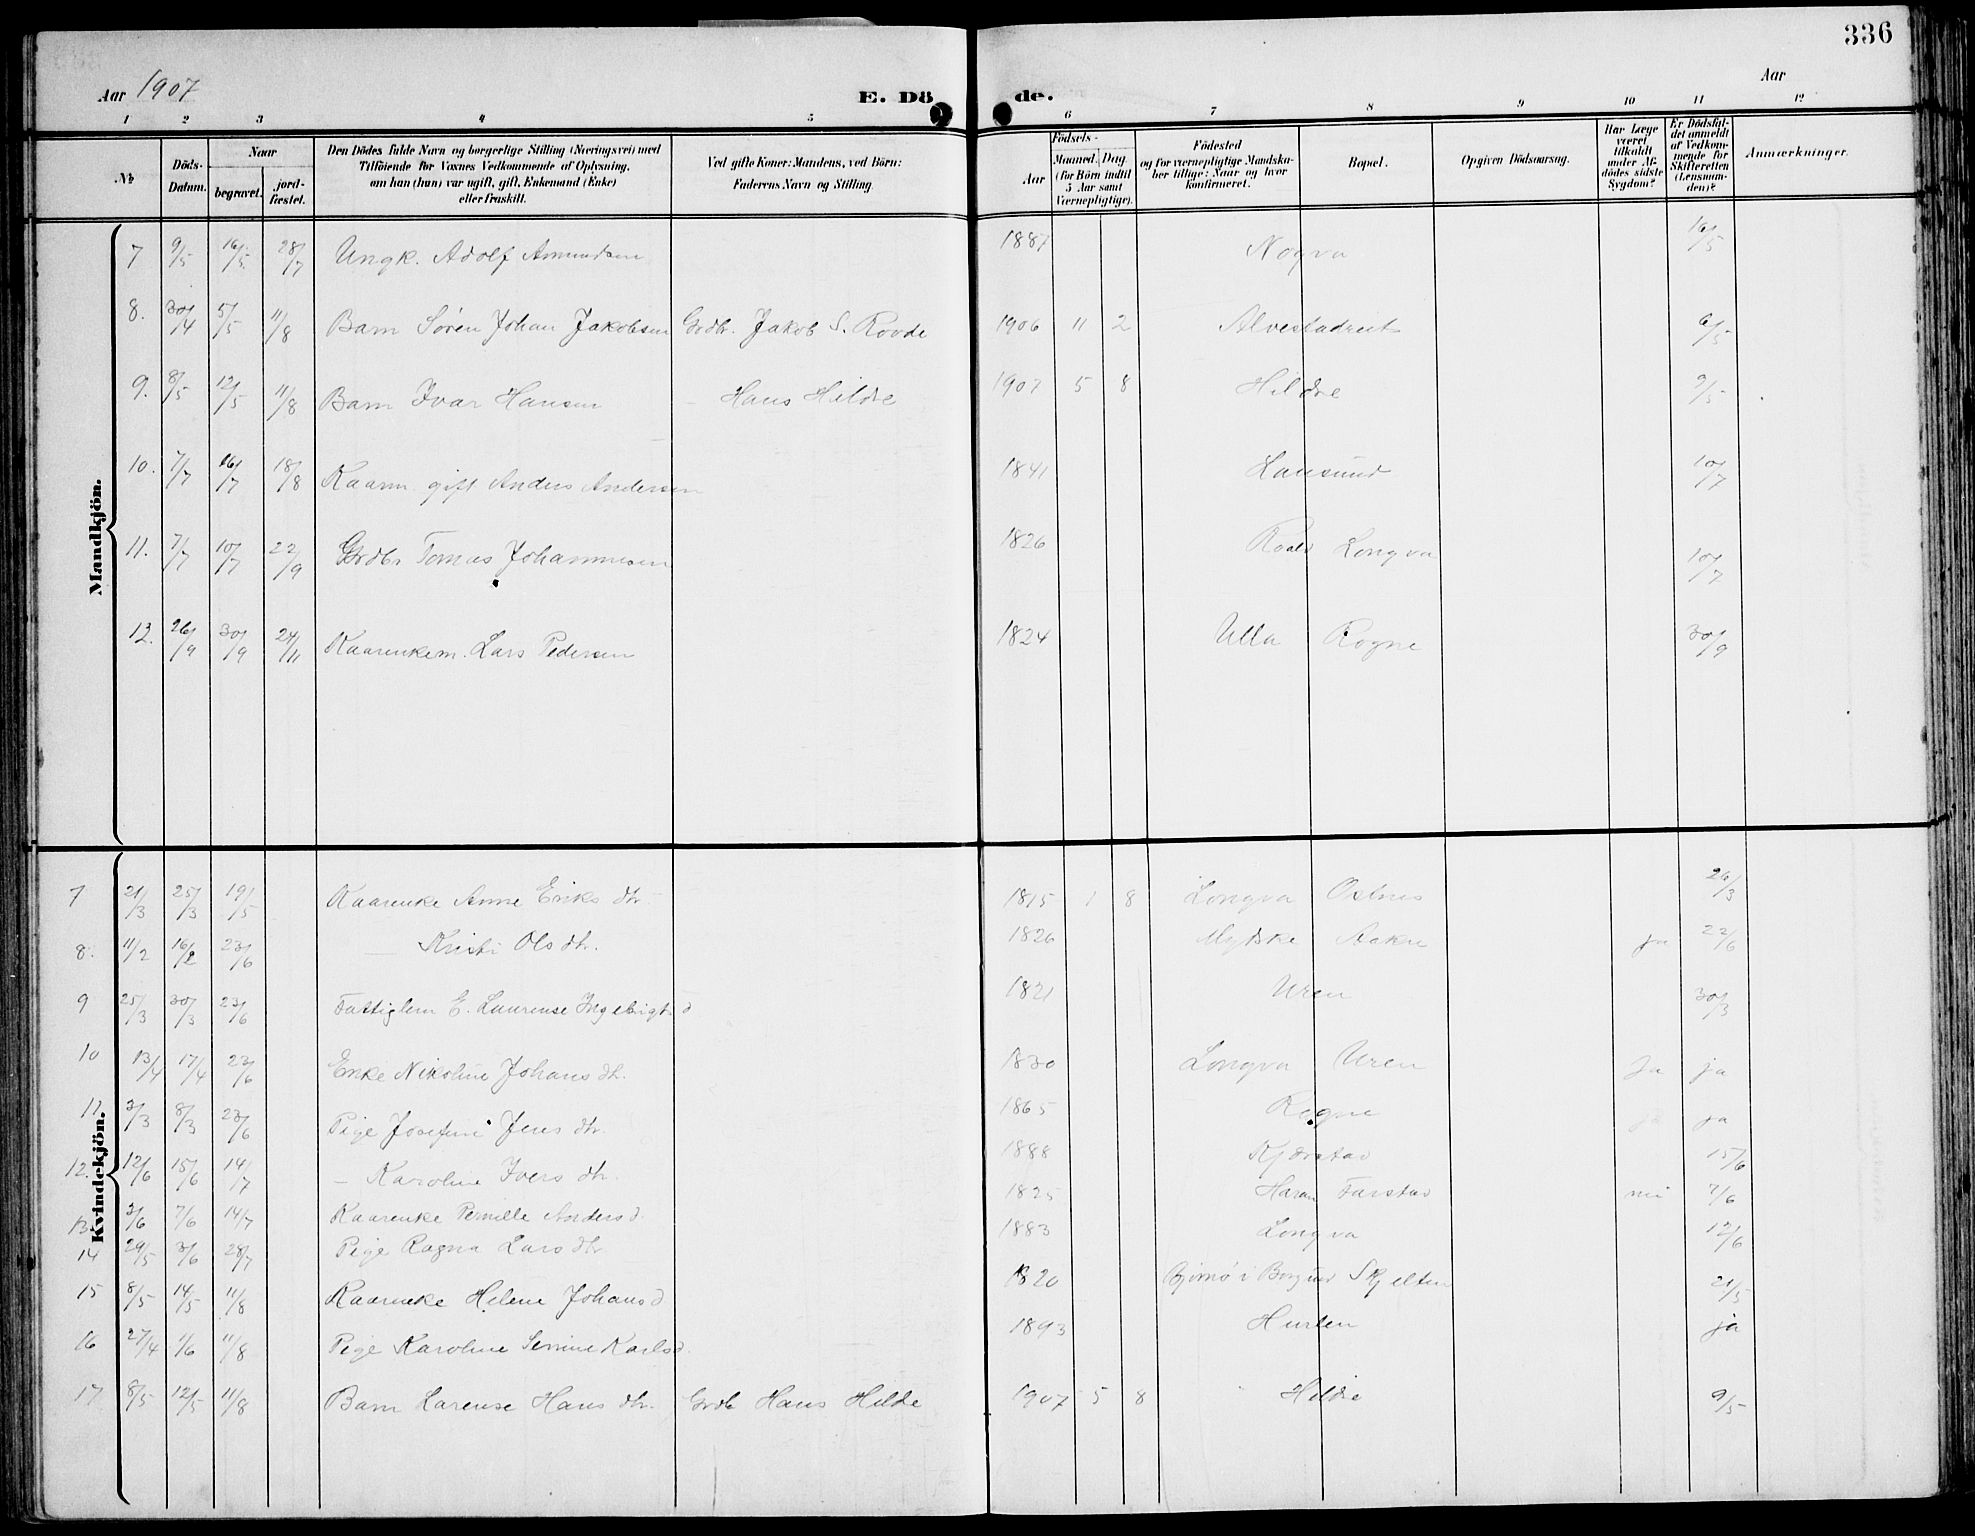 336
Aar 1907
E. Dö de.
Aar
1 2 3 4 5 6 7 8 9 10 11 12
№
Döds-Datum.
Naar
begravet.
jord-fæstet.
Den Dödes fulde Navn og borgerlige Stilling (Næringsvei) med
Tilföiende for Voxnes Vedkommende af Oplysning,
om han (hun) var ugift, gift, Enkemand (Enke)
eller fraskilt.
Ved gifte Koner: Mandens, ved Börn:
Faderens Navn og Stilling.
Födsels-
Aar
Maaned. Dag.
(for Börn indtil
5 Aar samt
Værnepligtige).
Födested
og for værnepligtige Mandska-
ber tillige: Naar og hvor
konfirmeret.
Bopæl.
Opgiven Dödsaarsag.
Har Læge
været
tilkaldt
under Af-
dödes sidste
Sygdom?
Er Dödsfal-
det anmeldt
af Vedkom-
mende for
Skifteretten
(Lensman-
den)?
Anmærkninger.
Mandkjön.
7 9/5 16/5 28/7 Ungk. Adolf Amundsen 1887 Nogva 16/5
8. 30/4 5/5 11/8 Barn Søren Johan Jakobsen Grdb. Jakob S. Rovde 1906 11 2 Alvestadreit 6/5
9. 8/5 12/5 11/8 Barn Ivar Hansen – Hans Hildre 1907 5 8 Hildre 9/5
10. 7/7 16/7 18/8 Kaarm. gift Anders Andersen 1841 Hausund 10/7
11. 7/7 10/7 22/9 Grdbr Tomas Johannesen 1826 Roald Longva 10/7
12. 26/9 30/9 24/11 Kaarenkem. Lars Pedersen 1824 Ulla Rogne 30/9
Kvindekjön.
7 21/3 25/3 19/5 Kaarenke Anne Eriks dtr. 1815 1 8 Longva Ostnes /3
8. 11/2 16/2 23/6 — Kristi Ols dtr. 1826 Myrske Aakre ja 22/6
9 25/3 30/3 23/6 Fattiglem E. Laurense Ingebrigts d 1821 Uren 30/3
10 13/4 17/4 23/6 Enke Nikoline Johans dtr. 1830 Longva Uren Ja ja
11. 3/3 8/3 23/6 Pige Josefine Jens dtr. 1865 Rogne ja ja
12. 12/6 15/6 14/7 – Karoline Ivers dtr. 1888 Kjærstad 15/6
13 3/6 7/6 14/7 Kaarenke Pernille Anders d. 1825 Haram Farstad nei 7/6
14 29/5 3/6 28/7 Pige Ragna Lars dtr 1883 Longva 12/6
15 8/5 14/5 11/8 Kaarenke Helene Johans d 1820 Bjørnø i Borgund Skjelten 21/5
16 27/4 1/6 11/8 Pige Karoline Senine Karlsd. 1893 Hurlen ja
17 8/5 12/5 11/8 Barn Larense Hans dtr. Grdb Hans Hildre 1907 5 8 Hildre 9/5